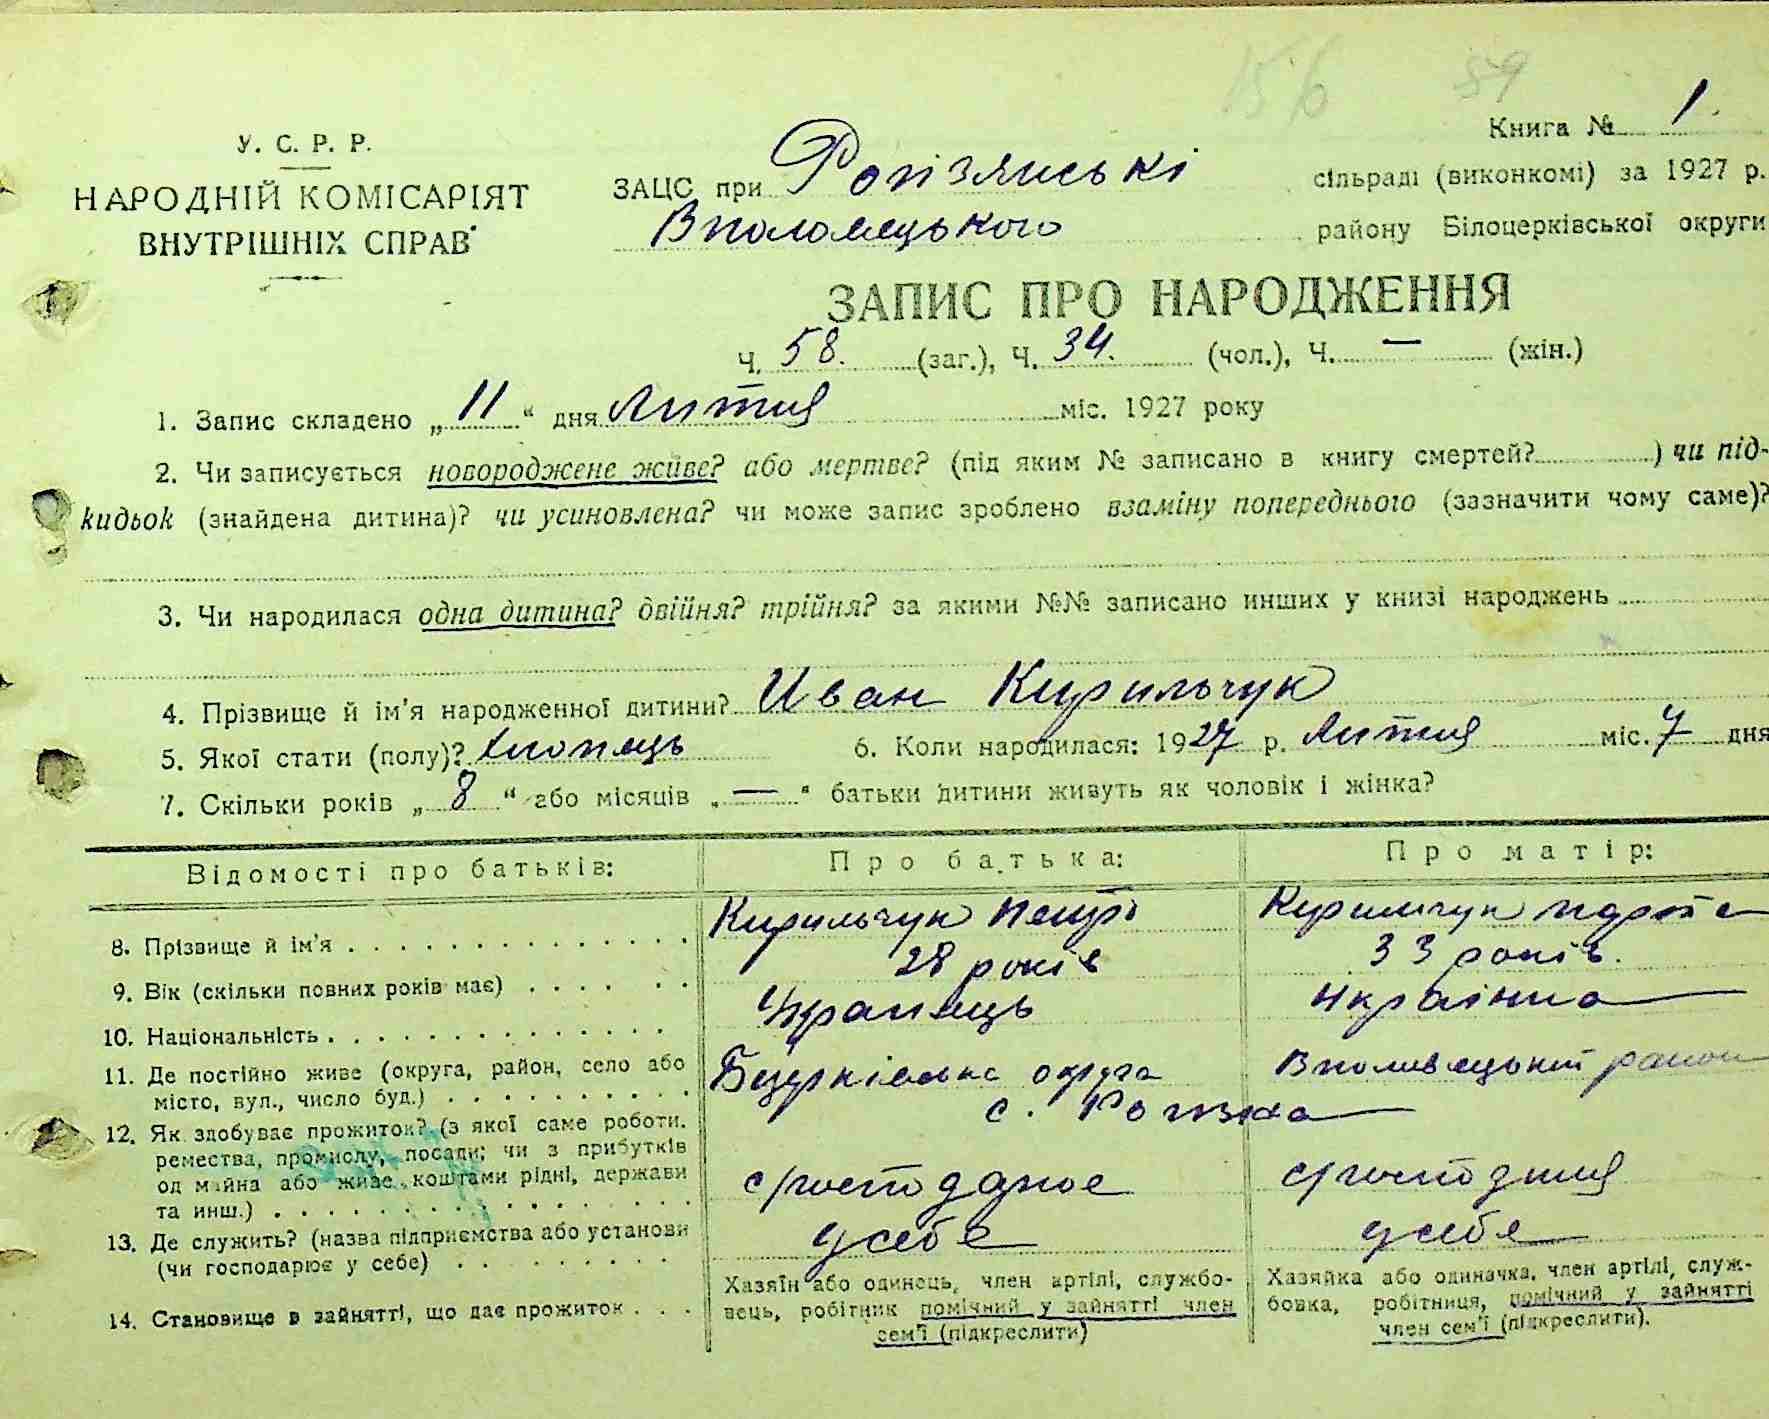 156 59
Книга № 1.
У. С. Р. Р.
НАРОДНІЙ КОМІСАРІЯТ
ВНУТРІШНІХ СПРАВ
ЗАЦС при сільраді (виконкомі) за 1927 р.
району Білоцерківської округи
ЗАПИС ПРО НАРОДЖЕННЯ
Ч. 58. (заг.), Ч. 34. (чол.), Ч. — (жін.)
1. Запис складено „ 11 “ дня Лютня міс. 1927 року
2. Чи записується новороджене живе? або мертве? (під яким № записано в книгу смертей? ) чи під-
кидьок (знайдена дитина)? чи усиновлена? чи може запис зроблено взаміну попереднього (зазначити чому саме)?
3. Чи народилася одна дитина? двійня? трійня? за якими №№ записано инших у книзі народжень
4. Прізвище й ім'я народженної дитини? Иван Кирильчук
5. Якої стати (полу)? хлопець 6. Коли народилася: 1927 р. Лютня міс. 7 дня
7. Скільки років „ 8 “ або місяців „ — “ батьки дитини живуть як чоловік і жінка?
Відомості про батьків: Про батька: Про матір:
8. Прізвище й ім'я Кирильчук Петро Кирильчук
9. Вік (скільки повних років має) 28 років 33 років.
10. Національність Українець Українка
11. Де постійно живе (округа, район, село або
місто, вул., число буд.) округа район
с.
12. Як здобуває прожиток? (з якої саме роботи,
ремества, промислу, посади; чи з прибутків
од майна або живе коштами рідні, держави
та инш.)
13. Де служить? (назва підприємства або установи
(чи господарює у себе) у себе у себе
14. Становище в зайнятті, що дає прожиток
Хазяїн або одинець, член артілі, службо-
вець, робітник помічний у зайнятті член
сем'ї (підкреслити)
Хазяйка або одиначка, член артілі, служ-
бовка, робітниця, помічний у зайнятті
член сем'ї (підкреслити).